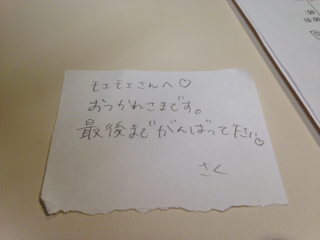 モエモエさんへ♡
おつかれさまです。
最後までがんばって下さい♡
さく
:00
18:00